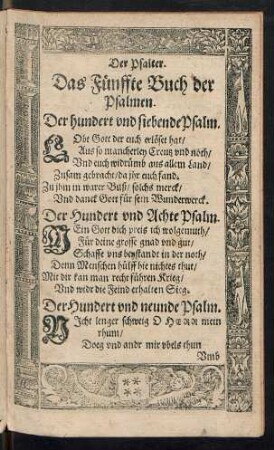 Der Psalter.
Das Fünffte Buch der
Psalmen.
Der hundert vnd siebende Psalm.
LObt Gott der euch erlöset hat/
Aus so mancherley Creutz vnd noth/
Vnd euch widrumb aus allem Land/
Zusam gebracht/da jhr euch fand.
Zu jhm in warer Buß/ solchs merck/
Vnd danck Gott für sein Wunderwerck.
Der Hundert vnd Achte Psalm.
MEin Gott dich preis ich wolgemuth/
Für deine grosse gnad vnd gut/
Schaffe vns beystand in der noth/
Denn Menschen hülff hie nichtes thut/
Mit dir kan man recht führen Krieg/
Vnd wider die Feind erhalten Sieg.
Der Hundert vnd neunde Psalm.
NIcht lenger schweig O HERR mein
rhum/
Doeg vnd andr mir vbels thun
Vmb